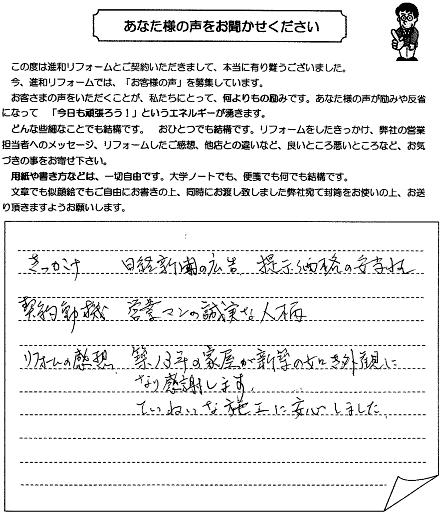 あなた様の声をお聞かせください
この度は進和リフォームとご契約いただきまして、本当に有り難うございました。
今、進和リフォームでは、「お客様の声」を募集しています。
お客さまの声をいただくことが、私たちにとって、何よりもの励みです。あなた様の声が励みや反省
になって 「今日も頑張ろう！」というエネルギーが湧きます。
どんな些細なことでも結構です。 おひとつでも結構です。リフォームをしたきっかけ、弊社の営業
担当者へのメッセージ、リフォームしたご感想、他店との違いなど、良いところ悪いところなど、お気
づきの事をお寄せ下さい。
用紙や書き方などは、一切自由です。大学ノートでも、便箋でも何でも結構です。
文章でも似顔絵でもご自由にお書きの上、同時にお渡し致しました弊社宛て封筒をお使いの上、お送
り頂きますようお願いします。
きっかけ 日経新聞の広告 提示価格の安さ
契約動機 営業マンの誠実な人柄
リフォームの感想 築13年の家屋が新築の如き外観に
なり感謝します。
ていねいな施工に安心しました